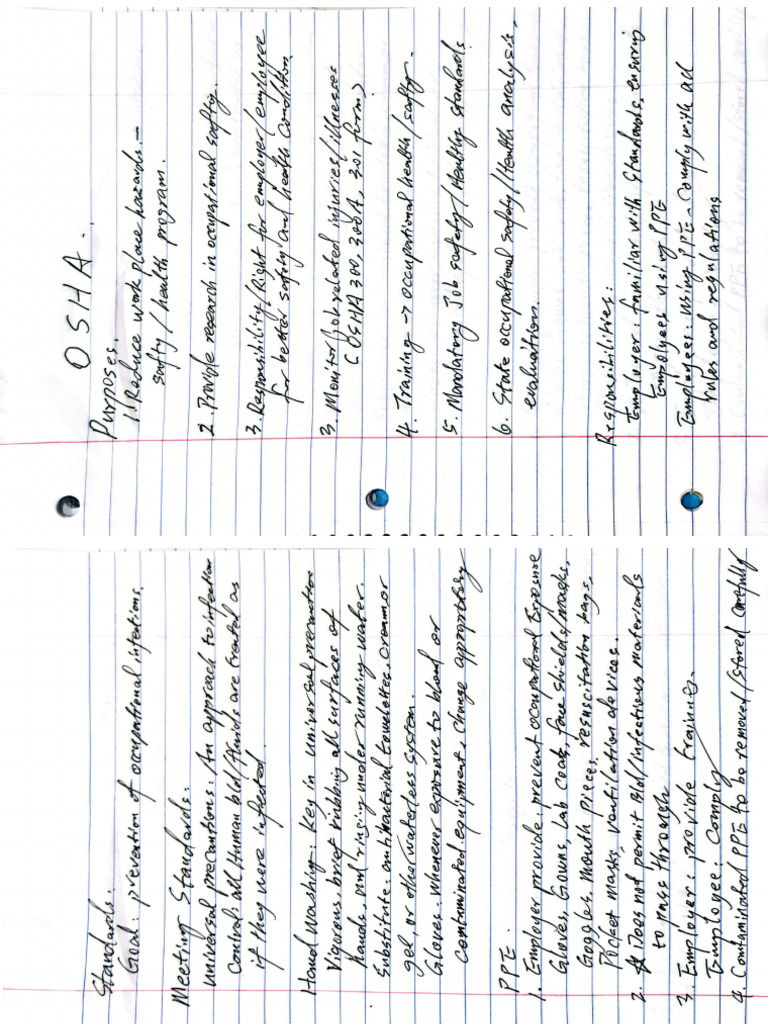 OSHA.
Purposes.
1. Reduce work place hazards. -
safty / health program.
2. Provide research in occupational safty.
3. Responsibility/Right for employer/employee
for better safety and health condition.
3. Monitor job related injuries/illnesses
(OSHA 300, 300A, 301 form)
4. Training → occupational health/safty.
5. Mandatory Job safty/Healthy standards
6. State occupational safty/Health analysis,
evaluation.
Responsibilities:
Employer: familiar with standards, ensuring
Employees using PPE
Employees: Using PPE - Comply with all
rules and regulations
Standards.
Goal: prevention of occupational infections.
Meeting Standards:
Universal precautions: An approach to infection
Control: all Human bld/fluids are treated as
if they were infected.
Hand washing: Key in universal precaution
Vigorous, brief rubbing all surfaces of
hands, and ringing under running water.
Substitute: antibacterial towelettes, cream or
gel, or other waterless system.
Gloves: whenever exposure to blood or
contaminated equipment. Change appropriately
PPE.
1. Employer provide: prevent occupational Exposure
Gloves, Gowns, Lab Coat, face shields/masks,
Goggles, Mouth Pieces, resuscitation bags,
Pocket masks, Ventilation devices.
2. Does not permit Bld/infectious materials
to pass through
3. Employer: provide trainings.
Employee: Comply
4. Contaminated PPE to be removed/stored carefully